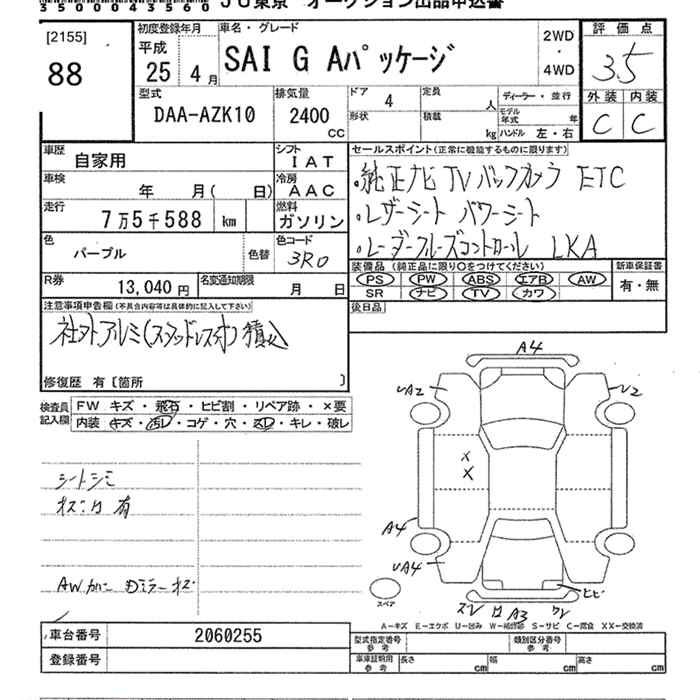 35000043560 JU東京 オークション出品申込書
[2155]
88
初度登録年月
平成
25年4月
車名・グレード
SAI G Aパッケージ
2WD
・
4WD
評価点
3.5
外装 内装
C C
型式
DAA-AZK10
排気量
2400
CC
ドア 4
定員 人
形状
積載 kg
ディーラー・並行
モデル年式 年
ハンドル 左・右
車歴
自家用
シフト
IAT
車検
年 月( 日)
冷房
AAC
走行
7万5千588 km
燃料
ガソリン
色
パープル
色替
色コード
3R0
R券
13,040円
名変通知期限
月 日
セールスポイント(正常に機能するものに限ります)
・純正ナビ TV バックカメラ ETC
・レザーシート パワーシート
・レーダークルーズコントロール LKA
装備品(純正品に限り○をつけてください)
PS PW ABS エアB AW
SR ナビ TV カワ
新車保証書
有・無
後日品
注意事項申告欄(不具合内容等は具体的に記入して下さい)
社外アルミ(スタッドレス付)積込
修復歴 有[箇所 ]
検査員記入欄
FW キズ・飛石・ヒビ割・リペア跡・×要
内装・キズ・汚レ・コゲ・穴・スレ・キレ・破レ
シートシミ
有
AW ミラーキズ
A4
UA2
U2
X
X
A4
UA4
ヒビ
A3
スペア
A-キズ E-エクボ U-凹み W-補修跡 S-サビ C-腐食 XX-交換済
車台番号 2060255
登録番号
型式指定番号 参考
類別区分番号 参考
車庫証明用 参考
長さ cm 幅 cm 高さ cm